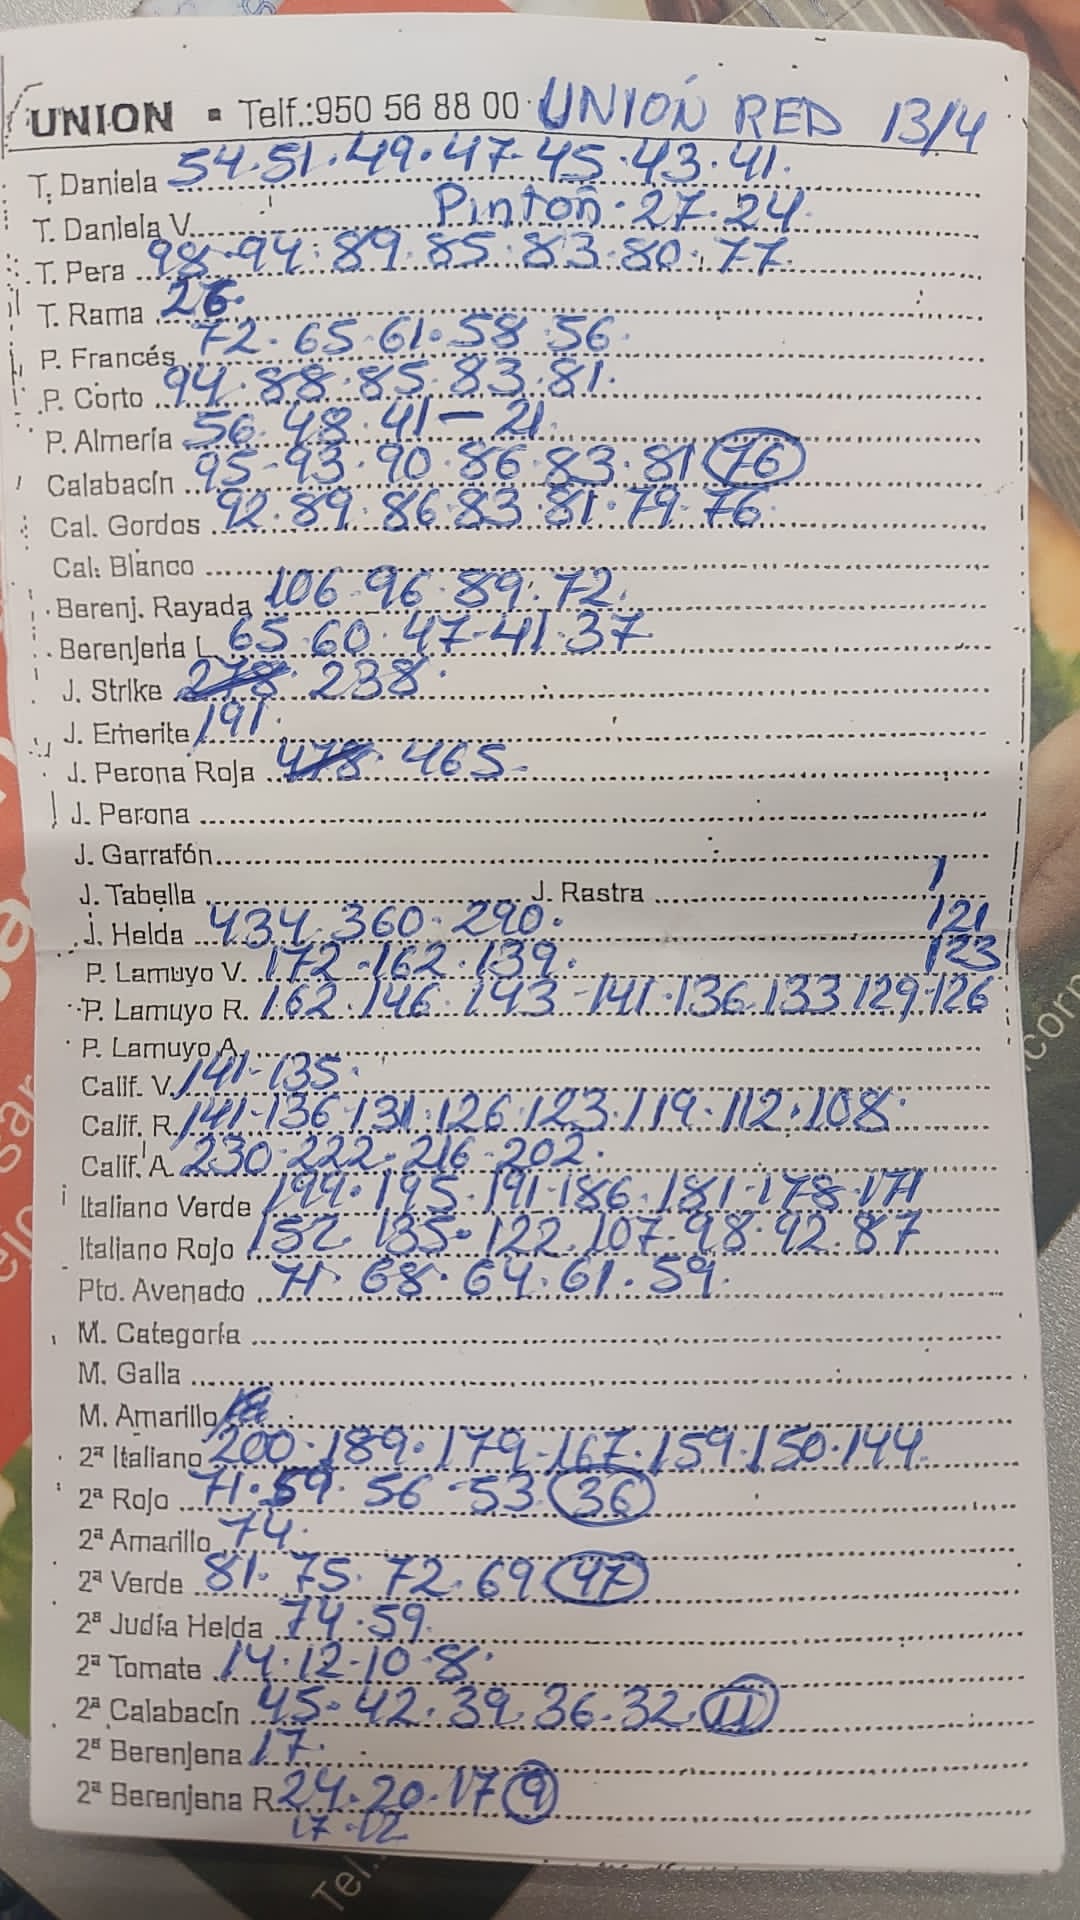 UNION ▪ Telf.:950 56 88 00 UNION RED 13/4
T. Daniela 54.51.49.47.45.43.41.
T. Daniela V. Pinton.27.24.
T. Pera 98.94.89.85.83.80.77.
T. Rama 26.
P. Francés 72.65.61.58.56.
P. Corto 94.88.85.83.81.
P. Almería 56.48.41-21.
Calabacín 95-93.90.86.83.81 76
Cal. Gordos 92.89.86.83.81.79.76.
Cal. Blanco
Berenj. Rayada 106.96.89.72.
Berenjena L. 65.60.47-41.37
J. Strike 278. 238.
J. Emerite 191.
J. Perona Roja 478. 465.
J. Perona
J. Garrafón
J. Tabella J. Rastra
J. Helda 434.360.290. 121
P. Lamuyo V. 172.162.139. 123
P. Lamuyo R. 162.146.143-141.136.133 129.126
P. Lamuyo A.
Calif. V. 141-135.
Calif. R. 141-136-131.126.123.119.112.108.
Calif. A. 230.222.216-202.
Italiano Verde 199.195.191-186.181-178.171
Italiano Rojo 152.135.122.107.98.92.87
Pto. Avenado 71.68.64.61.59.
M. Categoría
M. Galla
M. Amarillo
2ª Italiano 200.189.179-167.159.150.144.
2ª Rojo 71.59.56-53 36
2ª Amarillo 74.
2ª Verde 81.75.72.69 47
2ª Judía Helda 74.59.
2ª Tomate 14.12-10.8.
2ª Calabacín 45.42.39.36.32. 11
2ª Berenjena 17.
2ª Berenjena R. 24.20.17 9
17.12
Tel.